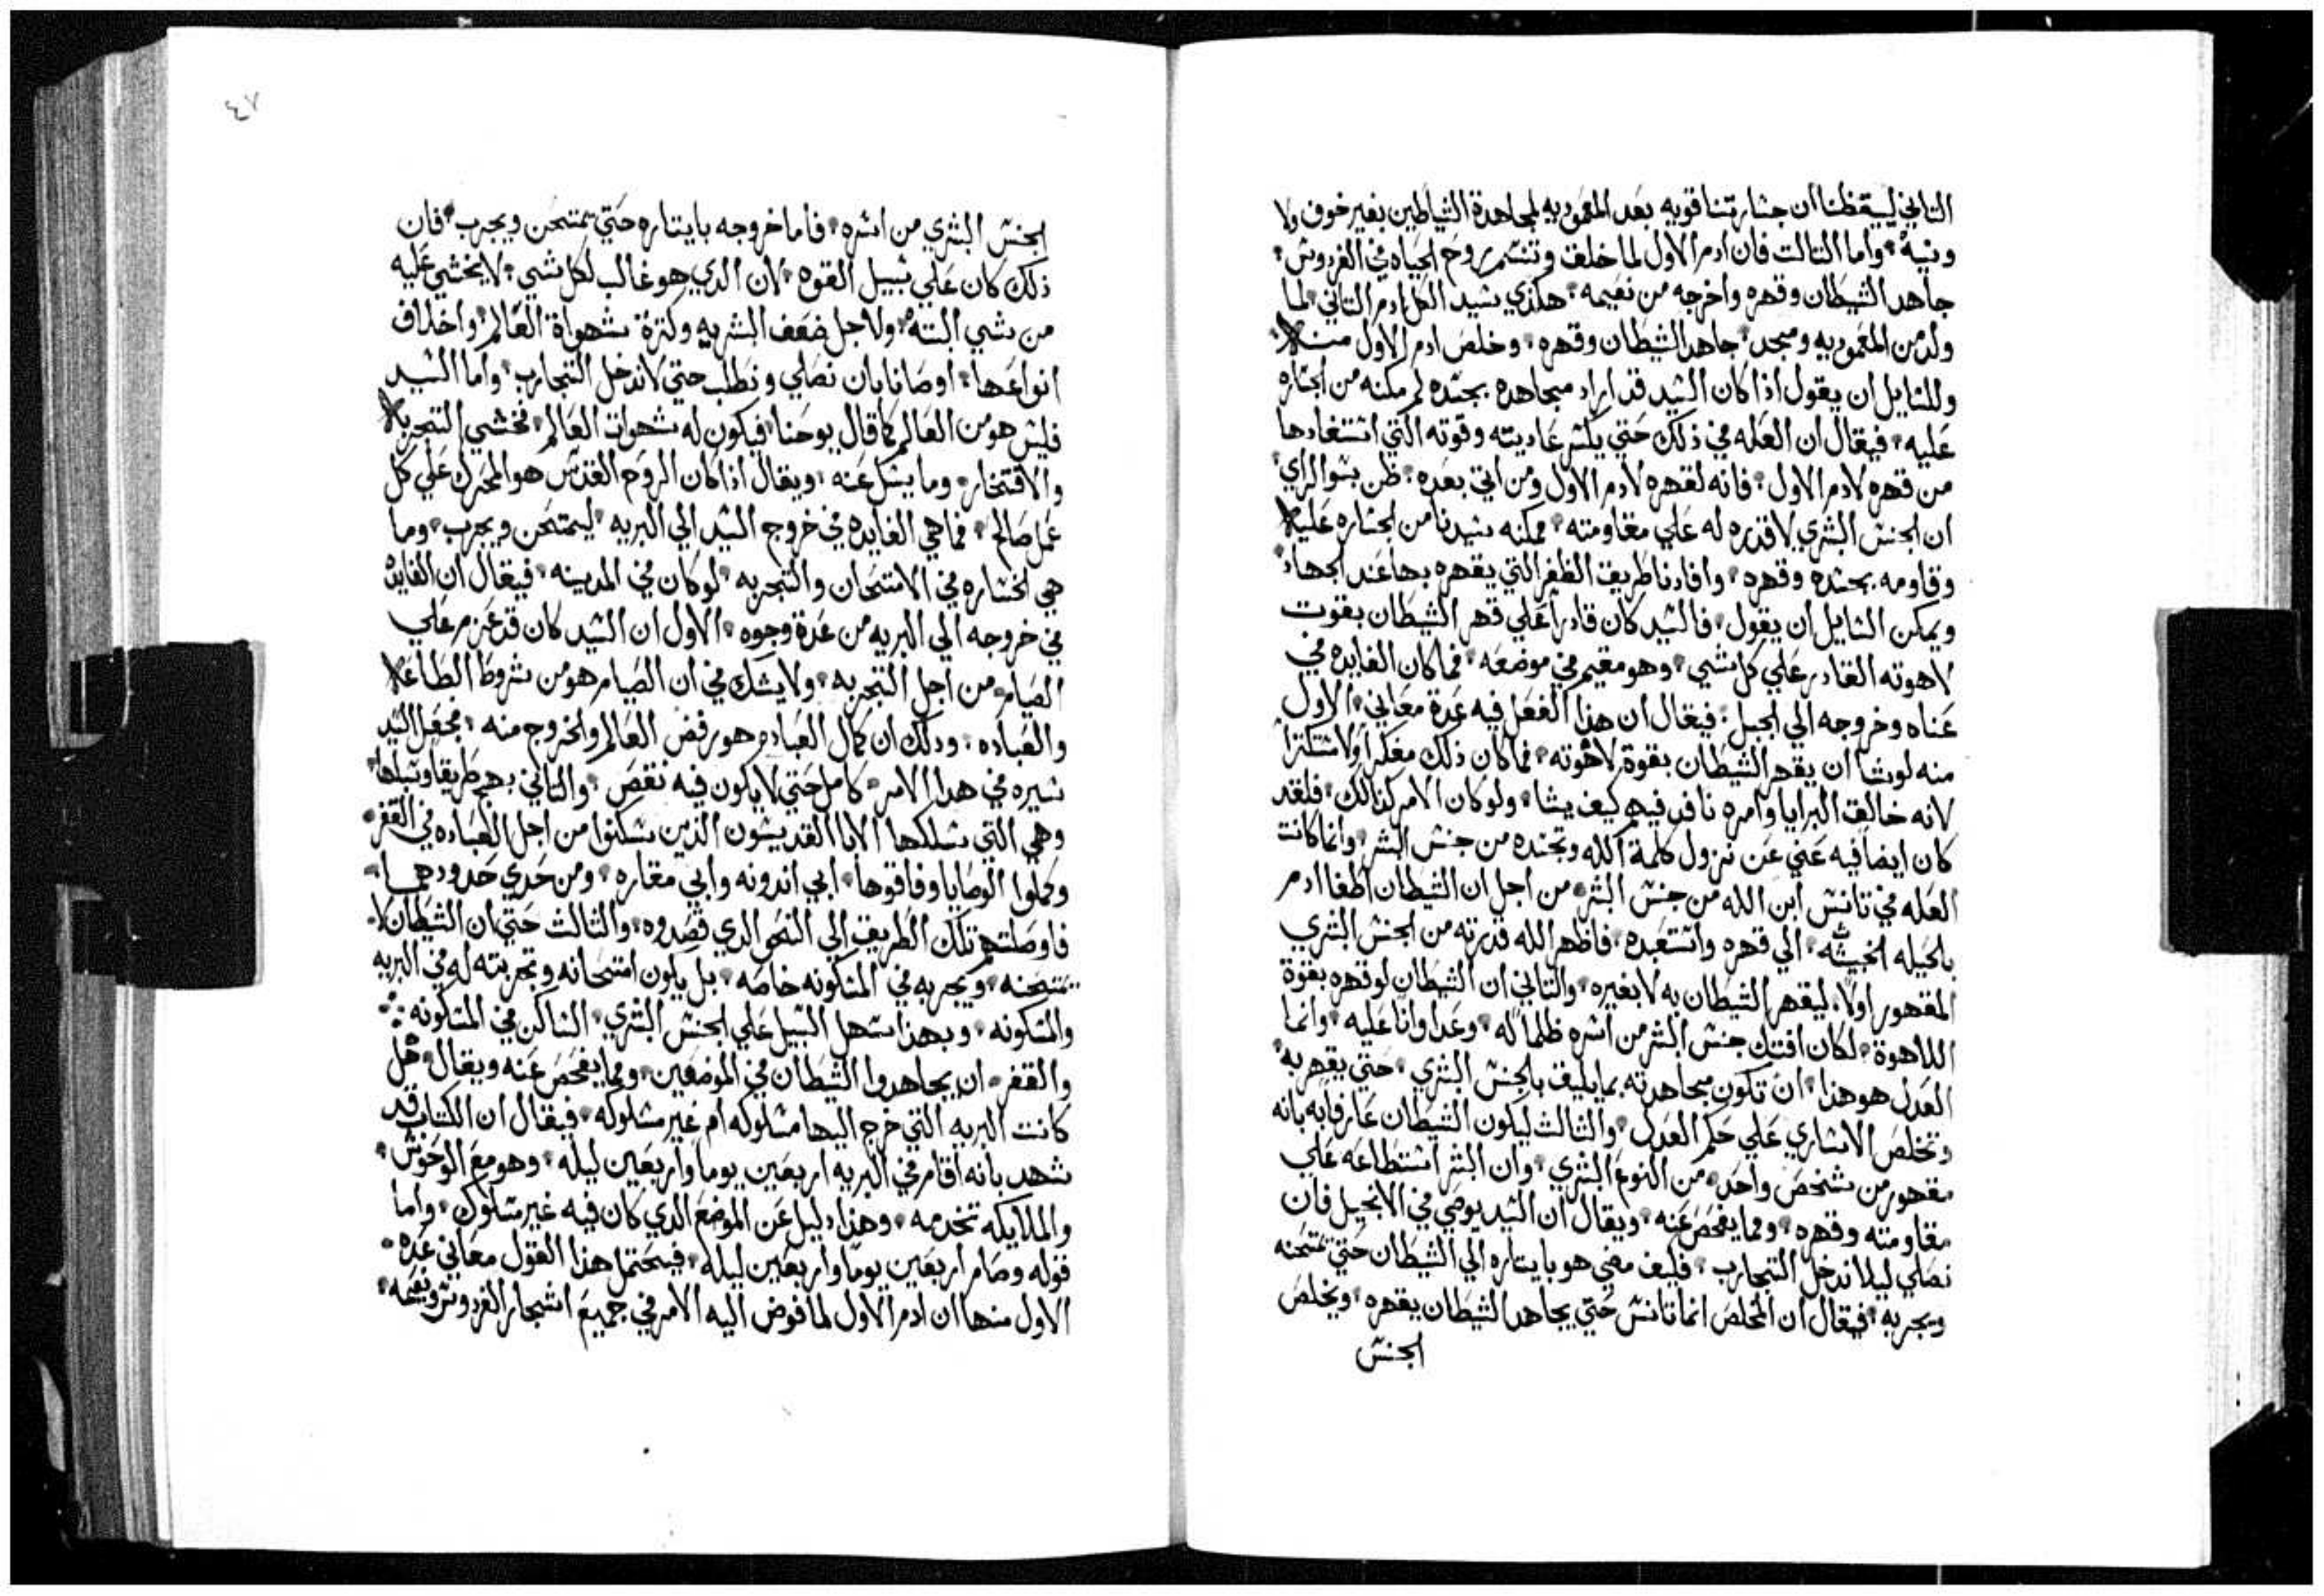 التاني ليستقظنا ان جشارتنا قويه بعد المعموديه لمجاهدة الشياطين بغير خوف ولا
ونيه واما التالت فان ادم الاول لما خلق وتنسم روح الحياه في الفردوس
جاهد الشيطان وقهره واخرجه من نعيمه هكذي سيد الكل ادم التاني لما
ولد من المعموديه ومجد جاهد الشيطان وقهره وخلص ادم الاول منه
وللسايل ان يقول اذا كان السيد قد اراد مجاهده بجسده لم مكنه من الجساره
عليه فيقال ان العله في ذلك حتي يكسر عاديته وقوته التي استفادها
من قهره لادم الاول فانه لقهره لادم الاول ومن اتي بعده ظن بسو الراي
ان الجنس البشري لا قدره له علي مقاومته فمكنه سيدنا من الجساره عليه
وقاومه بجسده وقهره وافادنا طريق الظفر التي يقهره بها عند الجهاد
ويمكن السايل ان يقول فالسيد كان قادرا علي قهر الشيطان بقوت
لاهوته القادر علي كل شي وهو مقيم في موضعه فما كان الفايده في
عناه وخروجه الي الجبل فيقال ان هذا الفعل فيه عدة معاني الاول
منه لو شا ان يقهر الشيطان بقوة لاهوته فما كان ذلك مفكرا ولا مستكترا
لانه خالق البرايا وامره نافد فيهم كيف يشا ولو كان الامر كذالك فلقد
كان ايضا فيه غني عن نزول كلمة الله وتجسده من جنس البشر وانما كانت
العله في تانس ابن الله من جنس البشر من اجل ان الشيطان اطغا ادم
بالحيله الخبيثه الي قهره واستعبده فاظهر الله قدرته من الجنس البشري
المقهور اولا ليقهر الشيطان به لا بغيره والتاني ان الشيطان لو قهره بقوة
اللاهوة لكان افتك جنس البشر من اسره ظلما له وعدوانا عليه وانما
العدل هو هذا ان تكون مجاهدته بما يليق بالجنس البشري حتي يقهر به
وتخلص الاساري علي حكم العدل والثالث ليكون الشيطان عارفا به بانه
مقهور من شخص واحد من النوع البشري وان البشر استطاعه علي
مقاومته وقهره ومما يفحص عنه ويقال ان السيد يوصي في الانجيل فان
نصلي ليلا ندخل التجارب فكيف مضي هو بايتاره الي الشيطان حتي تمتحنه
ويجربه فيقال ان المخلص انما تانس حتي يجاهد الشيطان يقهره ويخلص
الجنس
٤٧
الجنس البشري من اسره فاما خروجه بايتاره حتي يمتحن ويجرب فان
ذلك كان علي سبيل القوه لان الدي هو غالب لكل شي لا يخشي عليه
من شي البته ولاجل ضعف البشريه وكترة شهواة العالم واخلاف
انواعها اوصانا بان نصلي ونطلب حتي لا ندخل التجارب واما السيد
فليس هو من العالم كما قال يوحنا فيكون له شهوات العالم فخشي التجربه
والافتخار وما يسل عنه ويقال اذا كان الروح القدس هو المحرك علي كل
عمل صالح فما هي الفايده في خروج السيد الي البريه ليمتحن ويجرب وما
هي الخساره في الامتحان والتجربه لو كان في المدينه فيقال ان الفايده
في خروجه الي البريه من عدة وجوه الاول ان السيد كان قد عزم علي
الصيام من اجل التجربه ولا يشك في ان الصيام هو من شروط الطاعه
والعباده ودلك ان كمال العباده هو رفض العالم والخروج منه فجعل السيد
سيره في هدا الامر كامل حتي لا يكون فيه نقص والتاني بهج طريقا وسبلها
وهي التي سلكها الابا القديسون الذين سكنوا من اجل العباده في القفر
وكملوا الوصايا وفاقوها ابي اندونه وابي مقاره ومن حدي حدودهما
فاوصلتهم تلك الطريق الي النحو الدي قصدوه والثالث حتي ان الشيطان لا
يمتحنه ويجربه في المسكونه خاصه بل يكون امتحانه وتجربته له في البريه
والمسكونه وبهذا سهل السبيل علي الجنس البشري الساكن في المسكونه
والقفر ان يجاهدوا الشيطان في الموضعين ومما يفحص عنه ويقال هل
كانت البريه التي خرج اليها مسلوكه ام غير مسلوكه فيقال ان الكتاب قد
شهد بانه اقام في البريه اربعين يوما واربعين ليله وهو مع الوحوش
والملايكه تخدمه وهذا دليل عن الموضع الدي كان فيه غير مسلوك واما
قوله وصام اربعين يوما واربعين ليله فيحتمل هذا القول معاني عده
الاول منها ان ادم الاول لما فوض اليه الامر في جميع اشجار الفردوس ونعيمه